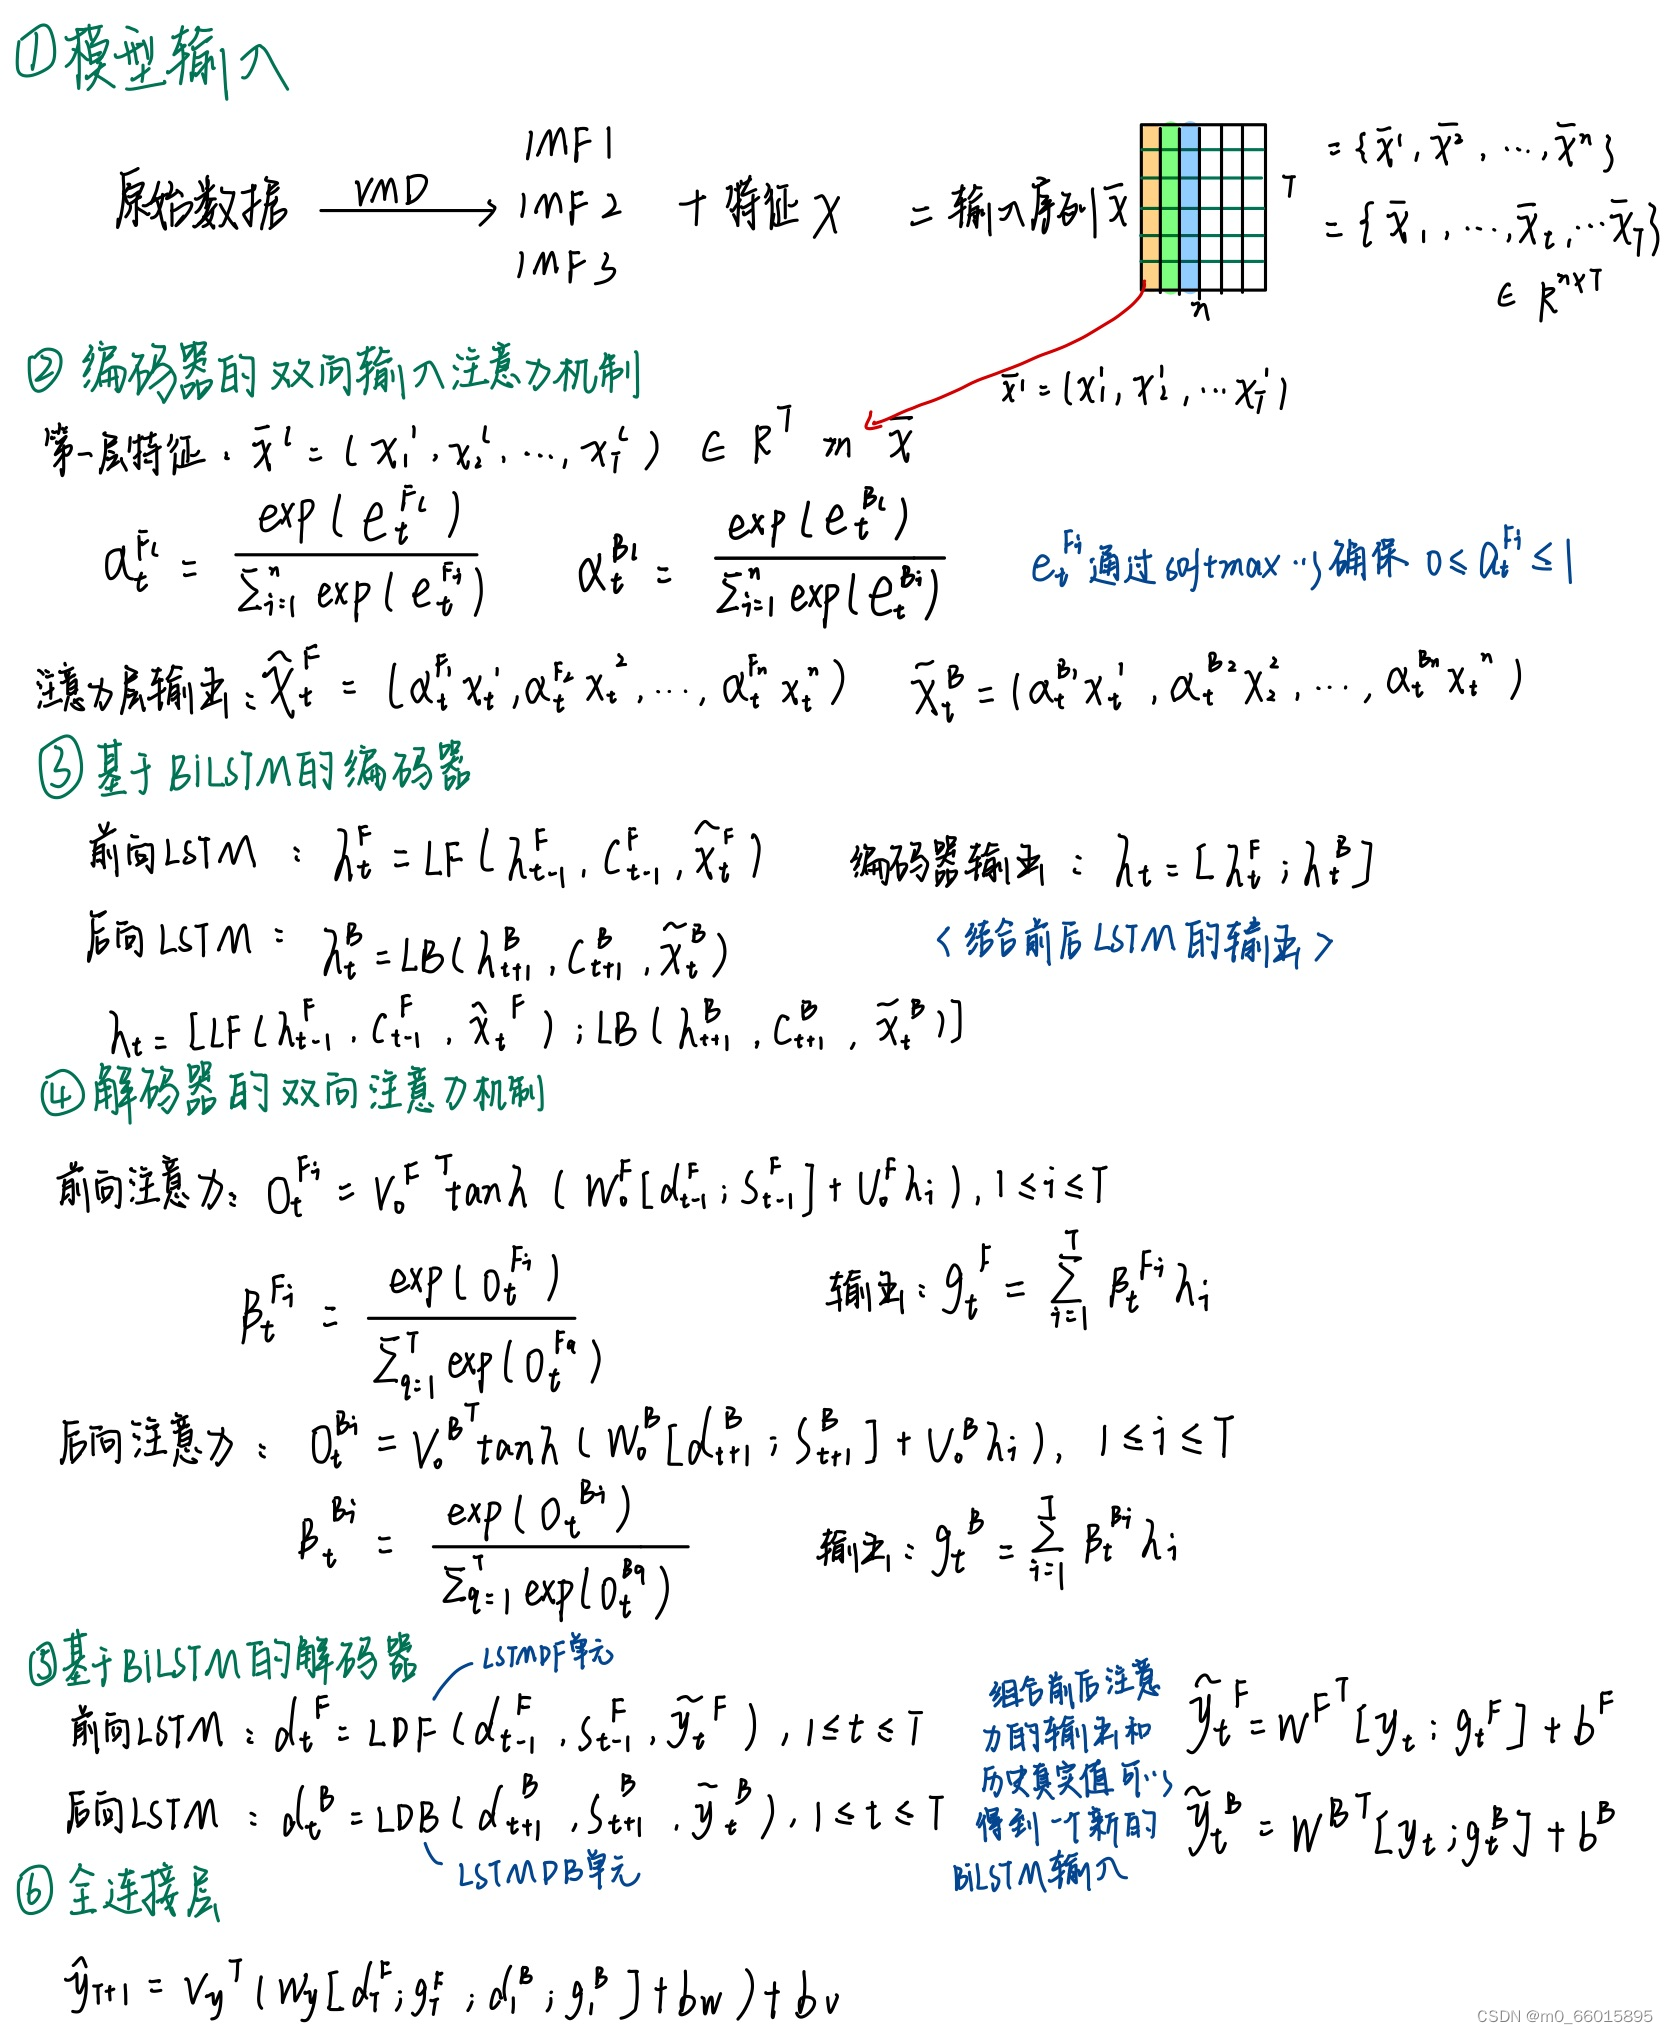 ①模型输入
IMF1
原始数据 VMD IMF2 + 特征 X = 输入序列 x̄ T = {x̄¹, x̄², ..., x̄ⁿ}
IMF3
= {x̄₁, ..., x̄ₜ, ... x̄_T}
n
∈ R^{n×T}
② 编码器的双向输入注意力机制
x̄¹ = (x₁¹, x₂¹, ... x_T¹)
第一层特征: x̄^l = (x₁^l, x₂^l, ..., x_T^l) ∈ R^T in x̄
α_t^{Fl} = exp(e_t^{Fl}) / Σ_{i=1}^n exp(e_t^{Fi}) α_t^{Bl} = exp(e_t^{Bl}) / Σ_{i=1}^n exp(e_t^{Bi}) e_t^{Fi} 通过softmax以确保 0 ≤ α_t^{Fi} ≤ 1
注意力层输出: x̂_t^F = (α_t^{F1} x_t^1, α_t^{F2} x_t^2, ..., α_t^{Fn} x_t^n) x̃_t^B = (α_t^{B1} x_t^1, α_t^{B2} x_2^2, ..., α_t^{Bn} x_t^n)
③ 基于BiLSTM的编码器
前向LSTM: h_t^F = LF(h_{t-1}^F, C_{t-1}^F, x̂_t^F) 编码器输出: h_t = [h_t^F; h_t^B]
后向LSTM: h_t^B = LB(h_{t+1}^B, C_{t+1}^B, x̃_t^B) <结合前后LSTM的输出>
h_t = [LF(h_{t-1}^F, C_{t-1}^F, x̂_t^F); LB(h_{t+1}^B, C_{t+1}^B, x̃_t^B)]
④解码器的双向注意力机制
前向注意力: O_t^{Fi} = V_o^{F T} tanh(W_o^F[d_{t-1}^F; S_{t-1}^F] + U_o^F h_i), 1 ≤ i ≤ T
β_t^{Fi} = exp(O_t^{Fi}) / Σ_{q=1}^T exp(O_t^{Fq}) 输出: g_t^F = Σ_{i=1}^T β_t^{Fi} h_i
后向注意力: O_t^{Bi} = V_o^{B T} tanh(W_o^B[d_{t+1}^B; S_{t+1}^B] + U_o^B h_i), 1 ≤ i ≤ T
β_t^{Bi} = exp(O_t^{Bi}) / Σ_{q=1}^T exp(O_t^{Bq}) 输出: g_t^B = Σ_{i=1}^T β_t^{Bi} h_i
⑤基于BiLSTM的解码器
LSTMDF单元
前向LSTM: d_t^F = LDF(d_{t-1}^F, S_{t-1}^F, ỹ_t^F), 1 ≤ t ≤ T
后向LSTM: d_t^B = LDB(d_{t+1}^B, S_{t+1}^B, ỹ_t^B), 1 ≤ t ≤ T
LSTMDB单元
组合前后注意
力的输出和
历史真实值可以
得到一个新的
BiLSTM输入
ỹ_t^F = W^{F T}[y_t; g_t^F] + b^F
ỹ_t^B = W^{B T}[y_t; g_t^B] + b^B
⑥ 全连接层
ŷ_{T+1} = V_y^T(W_y[d_T^F; g_T^F; d_1^B; g_1^B] + b_w) + b_v
CSDN @m0_66015895